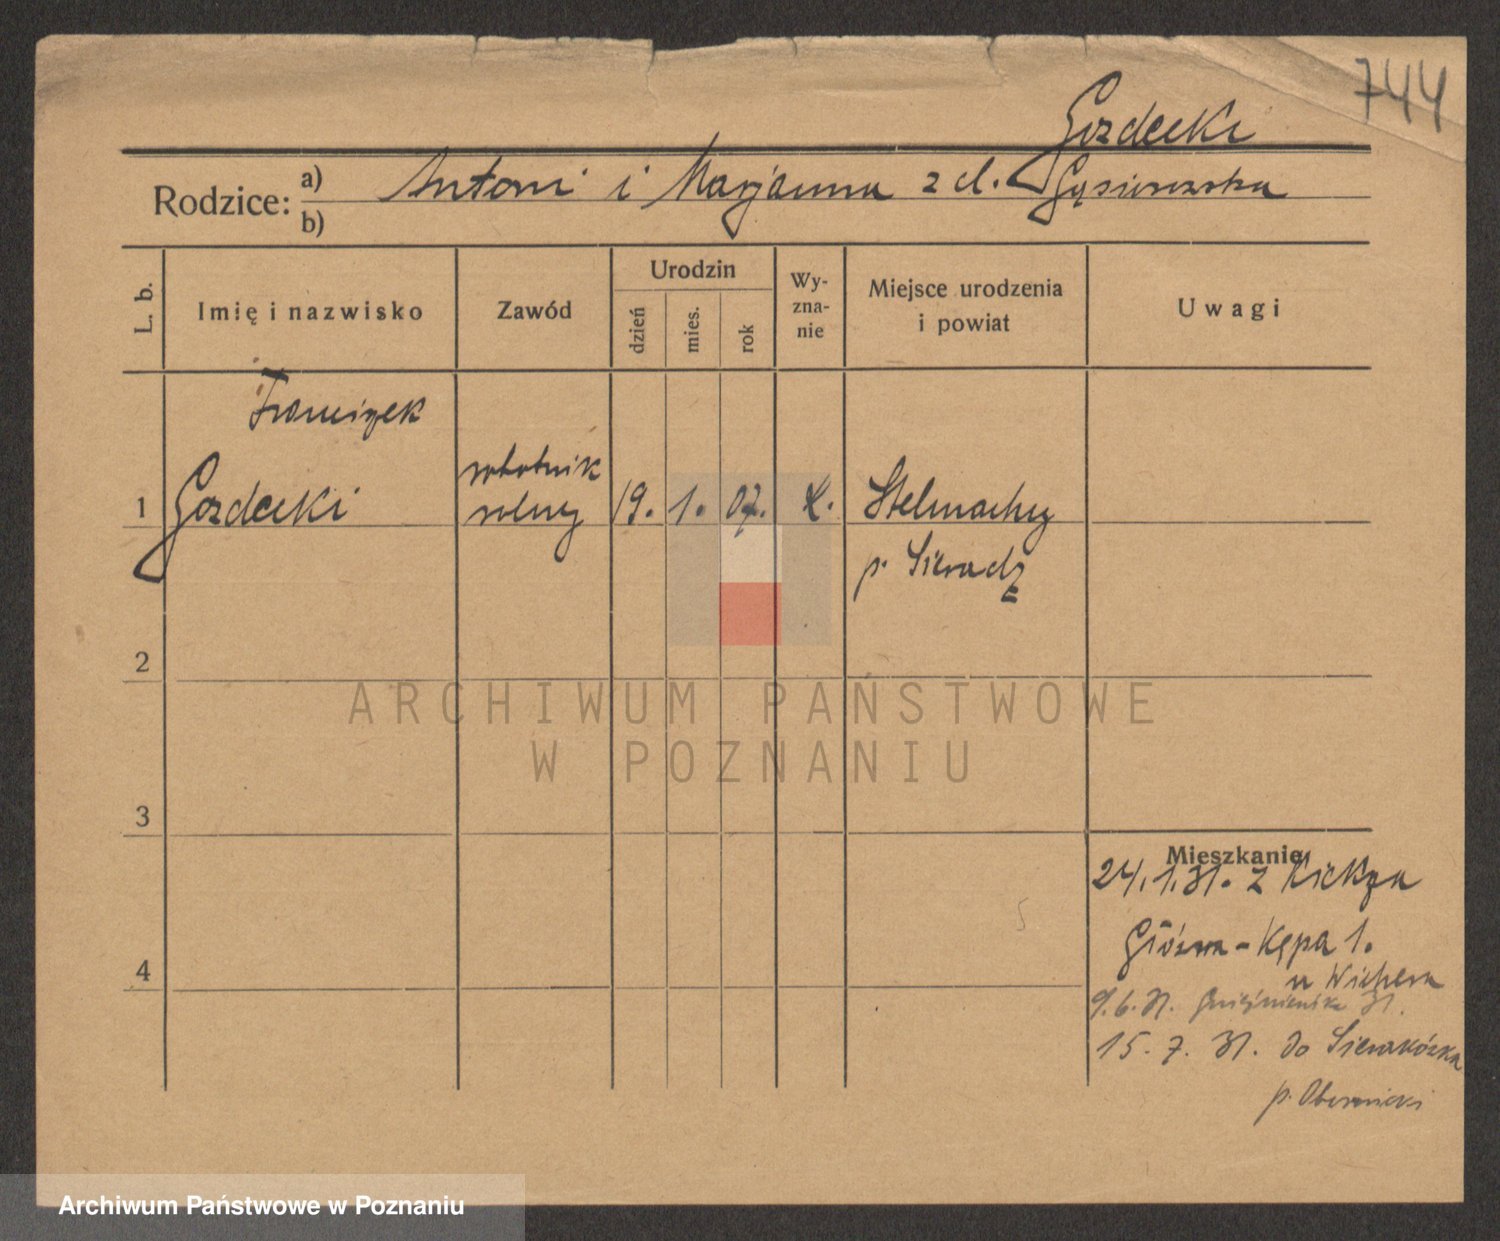 744
Gozdecki
Rodzice: a) Antoni i Marjanna z d. Gąsiorowska
b)
L. b.
Imię i nazwisko
Zawód
Urodzin
dzień
mies.
rok
Wy-
zna-
nie
Miejsce urodzenia
i powiat
Uwagi
Franciszek
1 Gozdecki
robotnik
rolny
19. 1. 07.
Stelmachy
p. Sieradz
2
ARCHIWUM PAŃSTWOWE
W POZNANIU
3
Mieszkanie
24.1.31. z Kiekrza
4
Główna - Kępa 1.
u Wichera
9.6.31. Gnieźnieńska 31.
15.7.31. do Sierakówka
p. Obornicki
Archiwum Państwowe w Poznaniu